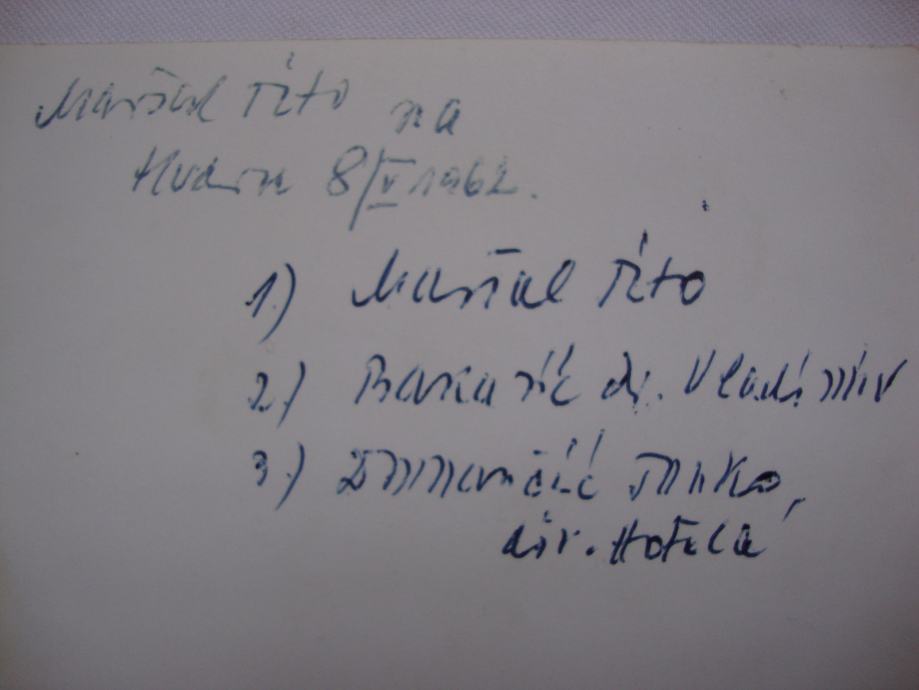 Maršal Tito na
Hvaru 8/V 1962.
1) Maršal Tito
2) Bakarić dr. Vladimir
3) Tinko,
dir. Hotela